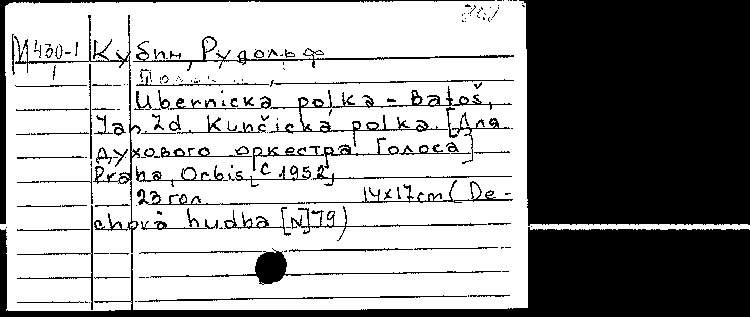 М430-1 Кубин, Рудольф
Ubernická polka – Bartoš,
Jan Zd. Kunčická polka. [Для
духового оркестра. Голоса]
Praha, Orbis, [c 1952,
23 гол. 14x17cm (De-
chová hudba [N]79)